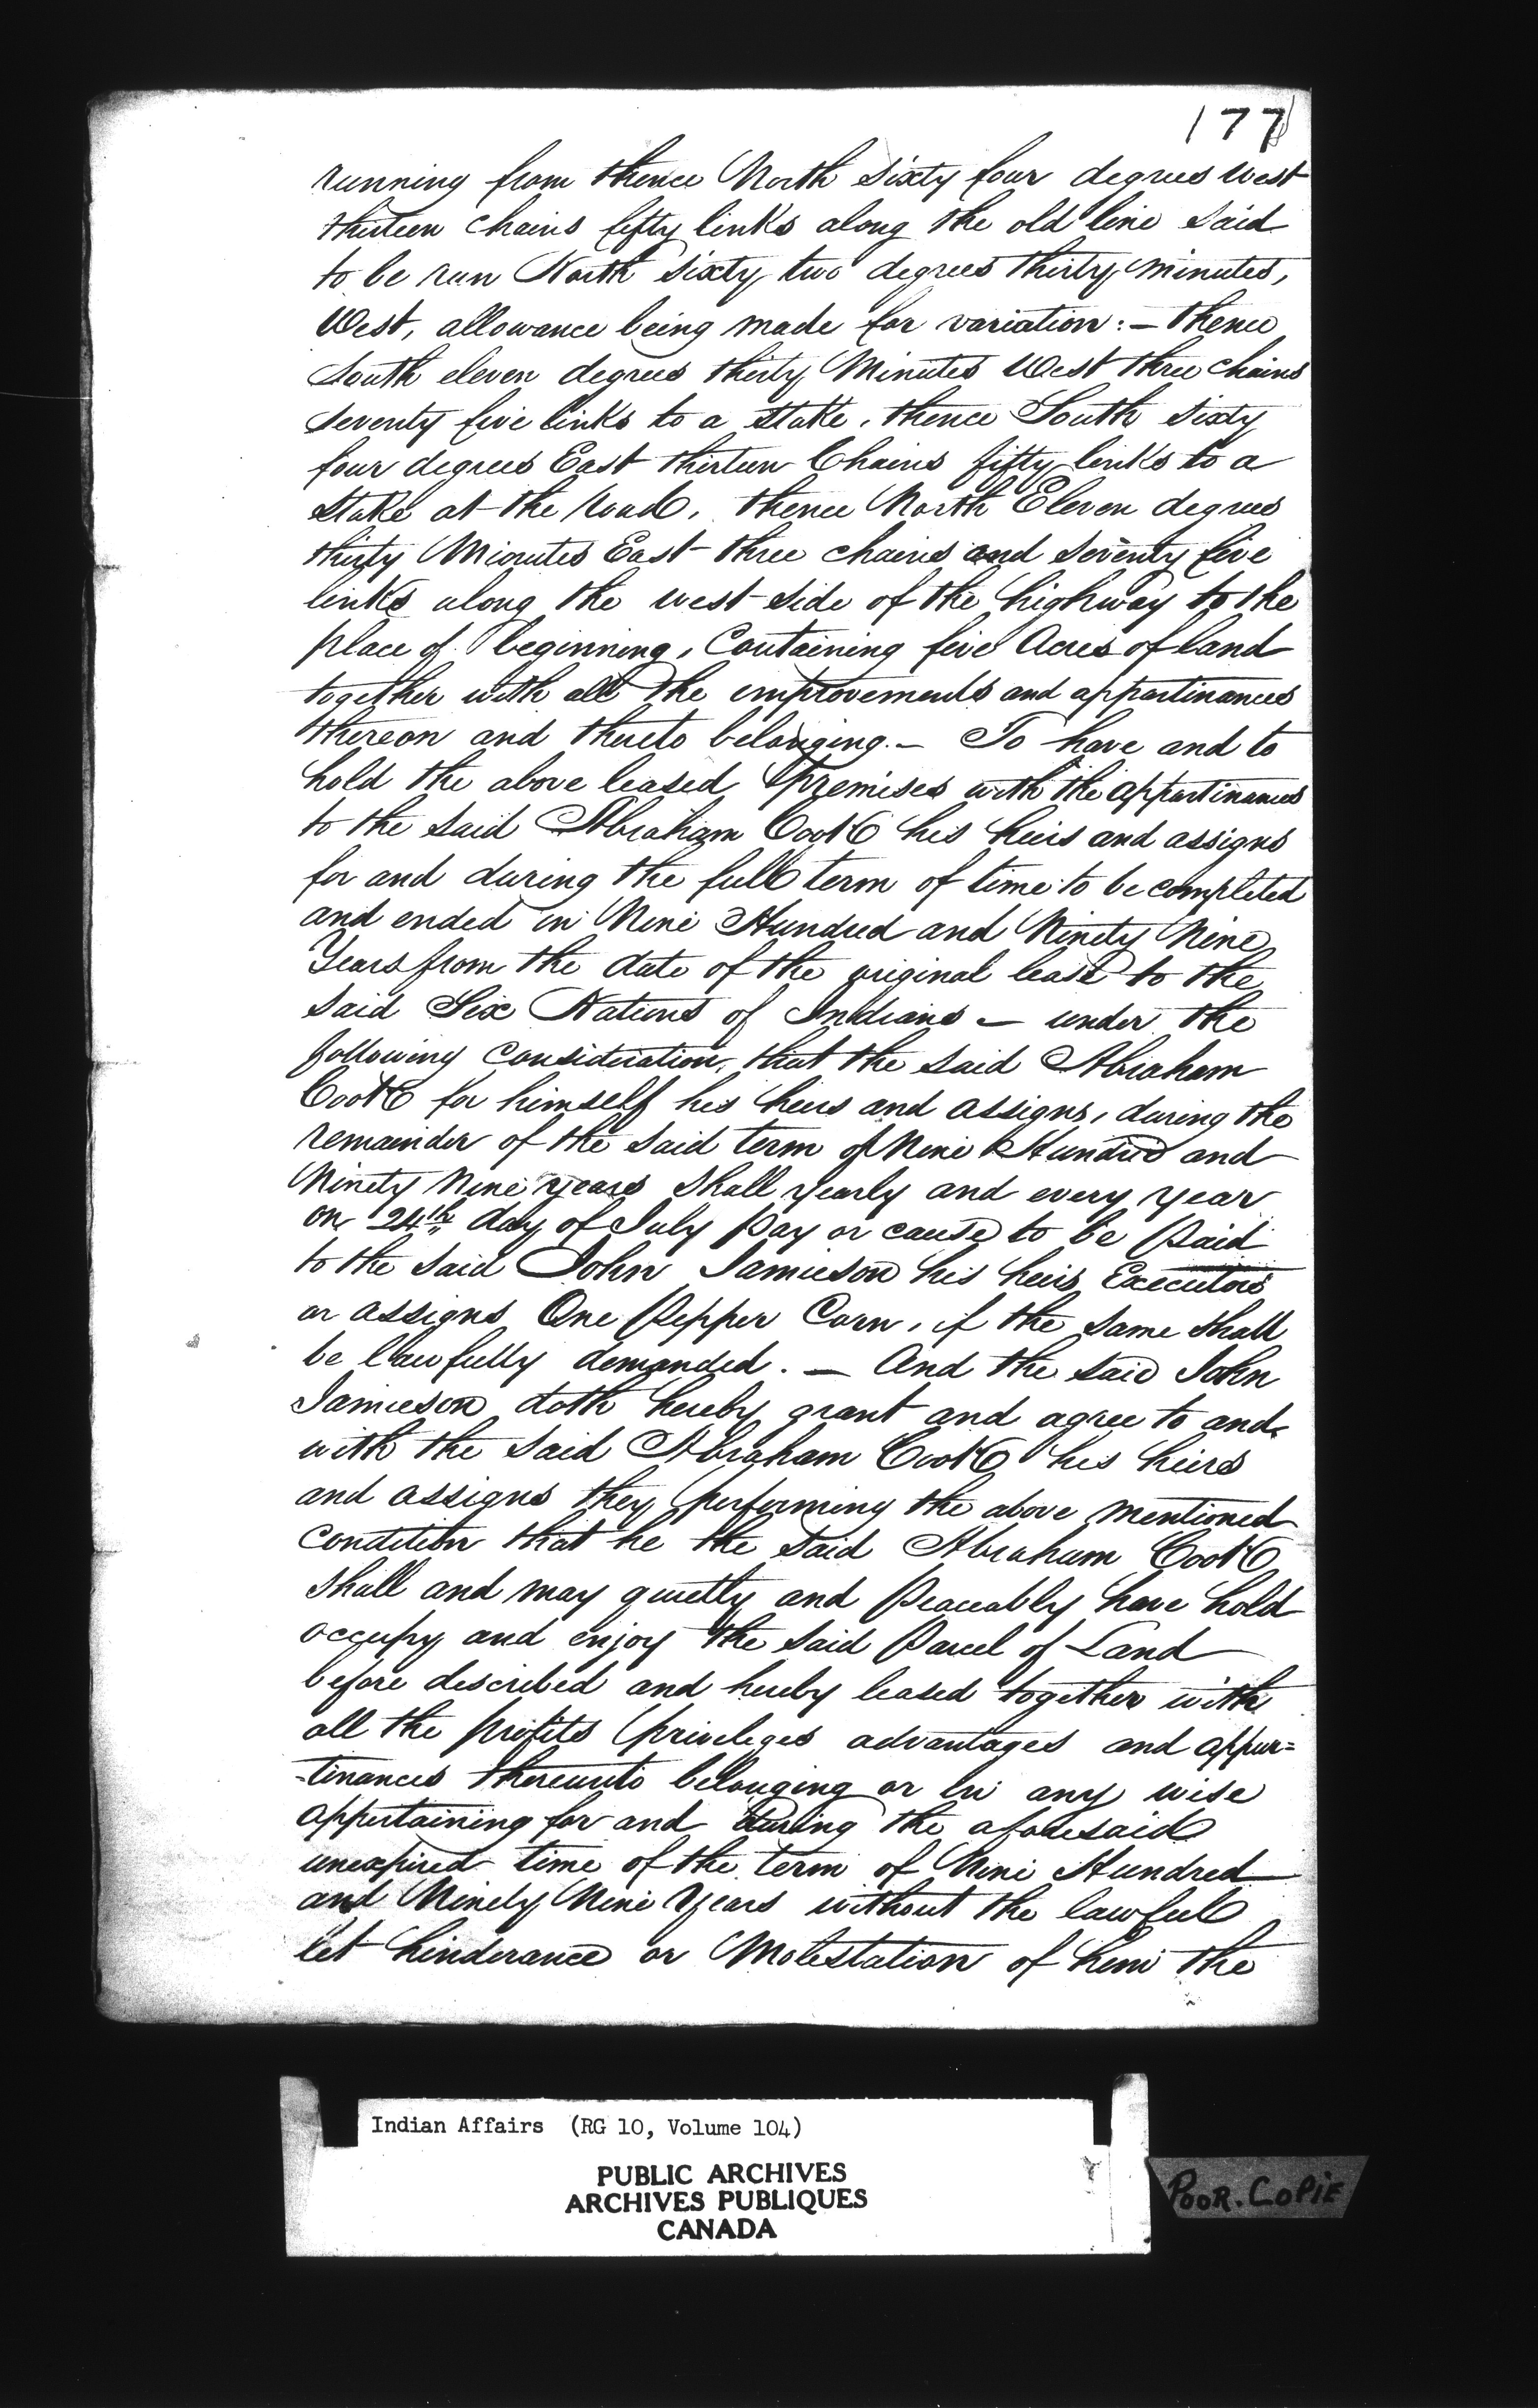 177
running from thence North Sixty four degrees West
thirteen Chains fifty links along the old line Said
to be run North Sixty two degrees thirty minutes,
West, allowance being made for variation:— thence
South eleven degrees thirty Minutes West three chains
Seventy five links to a Stake, thence South Sixty
four degrees East thirteen Chains fifty links to a
Stake at the road, thence North Eleven degrees
thirty Minutes East three chains and Seventy five
links along the west Side of the highway to the
place of beginning, Containing five Acres of land
together with all the improvements and appartinances
thereon and thereto belonging.— To have and to
hold the above leased premises with the appartinances
to the Said Abraham Cook his heirs and assigns
for and during the full term of time to be completed
and ended in Nine Hundred and Ninety Nine
Years from the date of the original lease to the
Said Six Nations of Indians — under the
following Consideration, that the Said Abraham
Cook for himself his heirs and assigns, during the
remainder of the Said term of Nine Hundred and
Ninety Nine years Shall yearly and every year
on 24th day of July pay or cause to be Paid
to the Said John Jamieson his heirs Executors
or assigns One Pepper Corn, if the Same Shall
be lawfully demanded. — And the Said John
Jamieson doth hereby grant and agree to and
with the Said Abraham Cook his heirs
and assigns they performing the above mentioned
Condition that he the Said Abraham Cook
Shall and may quietly and Peaceably have hold
occupy and enjoy the Said Parcel of Land
before described and hereby leased together with
all the profits privileges advantages and appur=
-tinances thereunto belonging or in any wise
appertaining for and during the aforesaid
unexpired time of the term of Nine Hundred
and Ninety Nine Years without the lawful
let hinderance or Molestation of him the
Indian Affairs (RG 10, Volume 104)
PUBLIC ARCHIVES
ARCHIVES PUBLIQUES
CANADA
POOR. COPIE